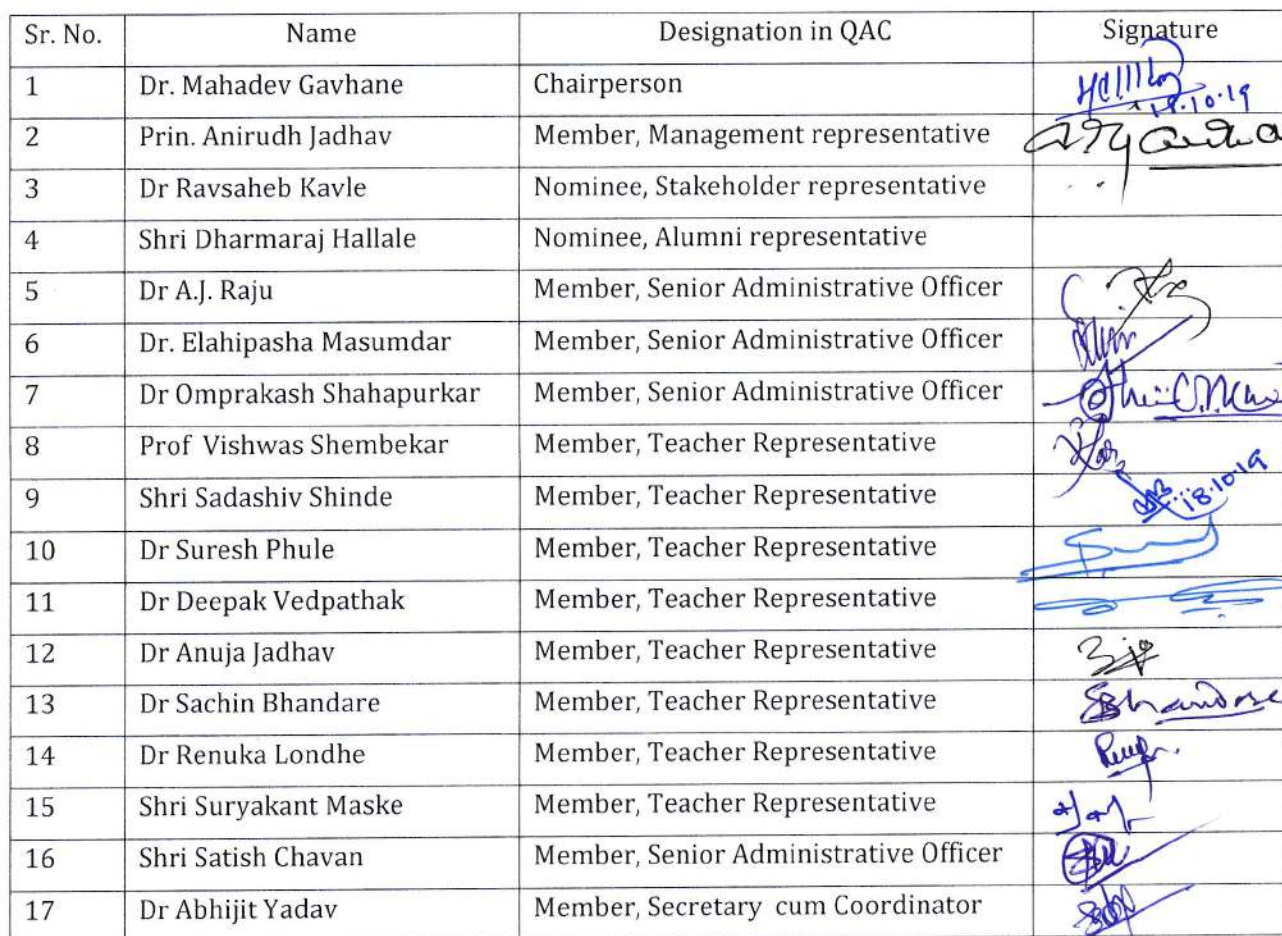 Sr. No. Name Designation in QAC Signature
1 Dr. Mahadev Gavhane Chairperson
18.10.19
2 Prin. Anirudh Jadhav Member, Management representative
3 Dr Ravsaheb Kavle Nominee, Stakeholder representative
4 Shri Dharmaraj Hallale Nominee, Alumni representative
5 Dr A.J. Raju Member, Senior Administrative Officer
6 Dr. Elahipasha Masumdar Member, Senior Administrative Officer
7 Dr Omprakash Shahapurkar Member, Senior Administrative Officer
8 Prof Vishwas Shembekar Member, Teacher Representative
9 Shri Sadashiv Shinde Member, Teacher Representative 18.10.19
10 Dr Suresh Phule Member, Teacher Representative
11 Dr Deepak Vedpathak Member, Teacher Representative
12 Dr Anuja Jadhav Member, Teacher Representative
13 Dr Sachin Bhandare Member, Teacher Representative SBhandare
14 Dr Renuka Londhe Member, Teacher Representative
15 Shri Suryakant Maske Member, Teacher Representative
16 Shri Satish Chavan Member, Senior Administrative Officer
17 Dr Abhijit Yadav Member, Secretary cum Coordinator